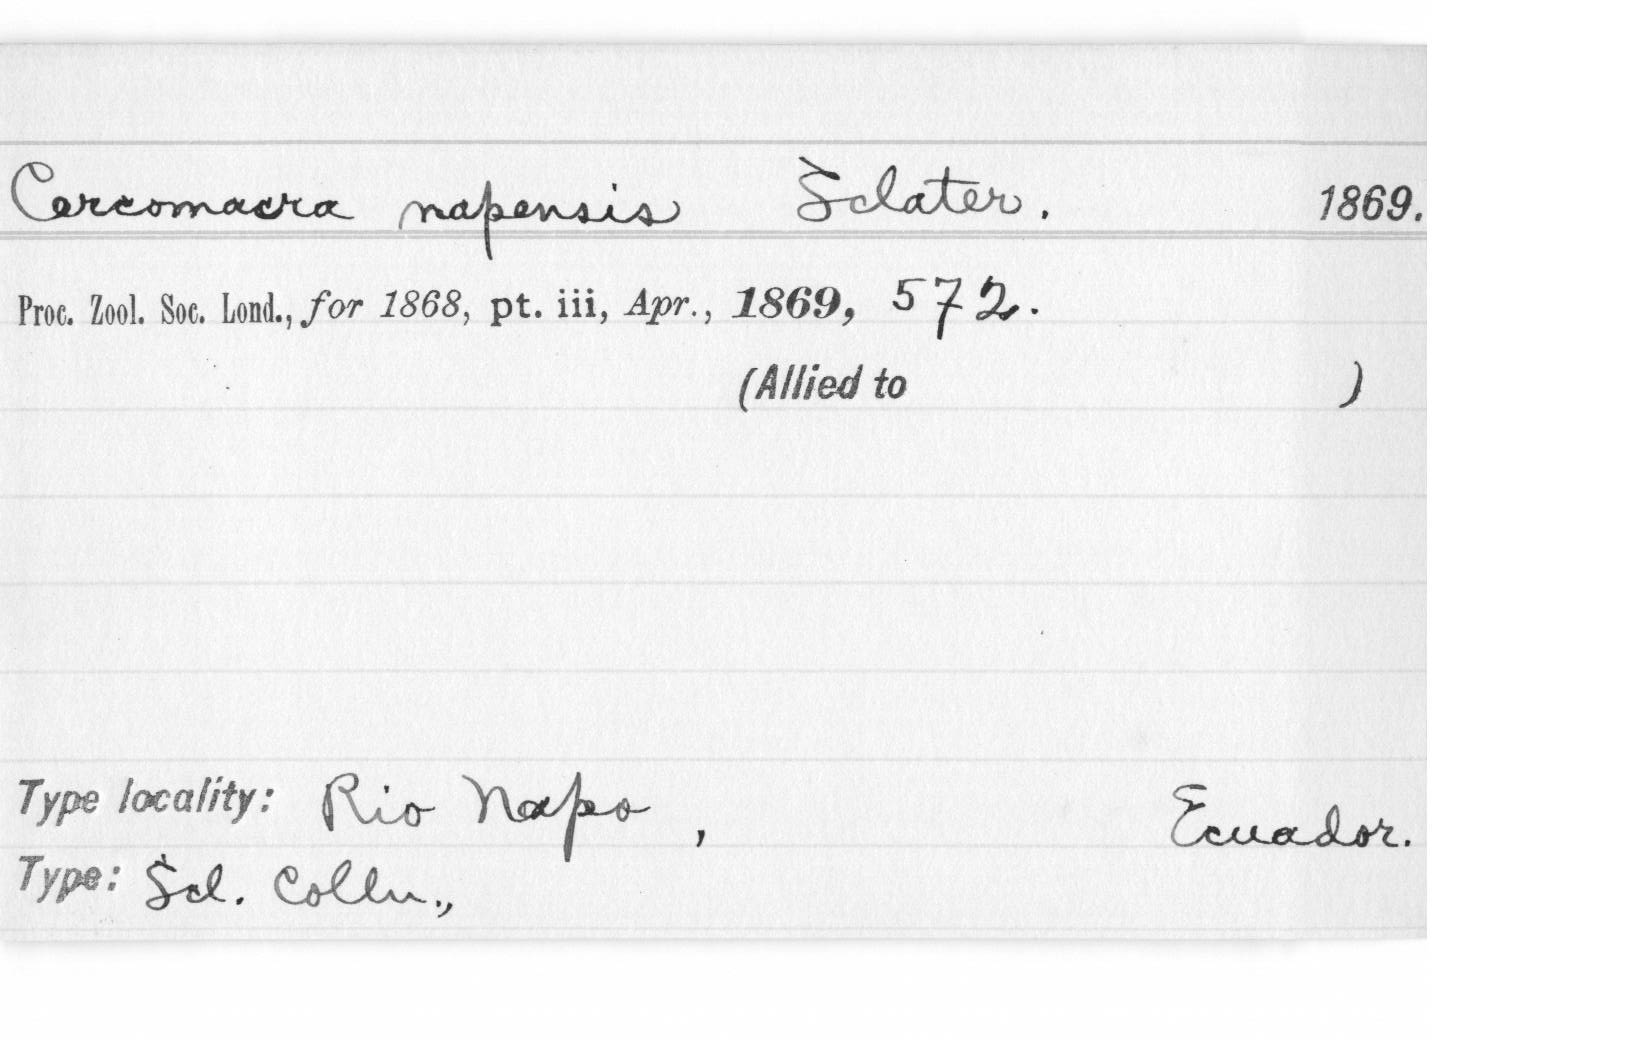 Cercomacra napensis Sclater. 1869.
Proc. Zool. Soc. Lond., for 1868, pt. iii, Apr., 1869, 572.
(Allied to )
Type locality: Rio Napo , Ecuador.
Type: Scl. Colln.,